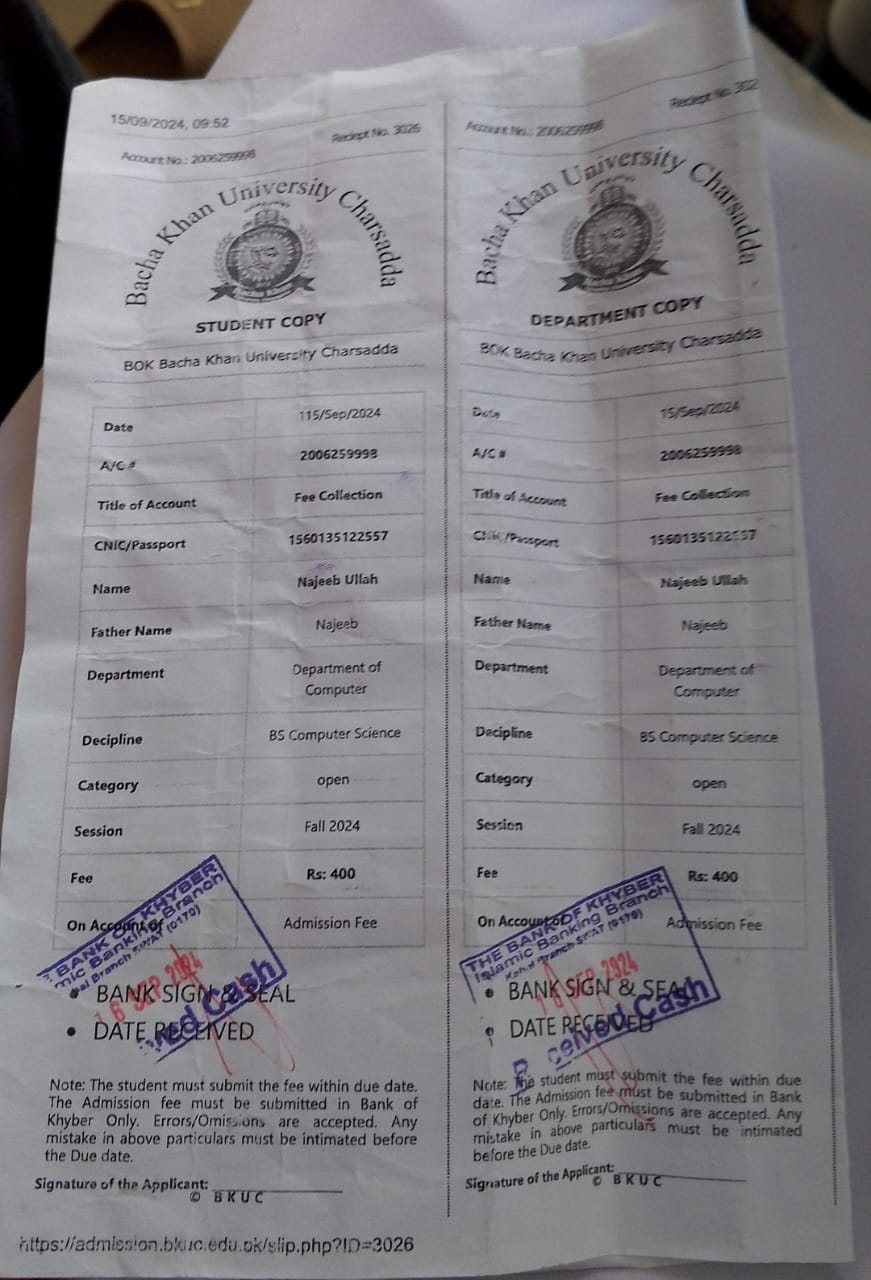 15/09/2024, 09:52
Reciept No. 3026
Account No.: 2006259998
Bacha Khan University Charsadda
STUDENT COPY
BOK Bacha Khan University Charsadda
Date 115/Sep/2024
A/C # 2006259998
Title of Account Fee Collection
CNIC/Passport 1560135122557
Name Najeeb Ullah
Father Name Najeeb
Department Department of
Computer
Decipline BS Computer Science
Category open
Session Fall 2024
Fee Rs: 400
On Account of Admission Fee
BANK OF KHYBER
mic Banking Branch
Branch SWAT (0170)
16 SEP 2024
• BANK SIGN & SEAL
• DATE RECEIVED
ived Cash
Note: The student must submit the fee within due date.
The Admission fee must be submitted in Bank of
Khyber Only. Errors/Omissions are accepted. Any
mistake in above particulars must be intimated before
the Due date.
Signature of the Applicant:
© BKUC
https://admission.bkuc.edu.pk/slip.php?ID=3026
Reciept No. 302
Account No.: 2006259998
Bacha Khan University Charsadda
DEPARTMENT COPY
BOK Bacha Khan University Charsadda
Date 15/Sep/2024
A/C # 2006259998
Title of Account Fee Collection
CNIC/Passport 1560135122557
Name Najeeb Ullah
Father Name Najeeb
Department Department of
Computer
Decipline BS Computer Science
Category open
Session Fall 2024
Fee Rs: 400
On Account of Admission Fee
THE BANK OF KHYBER
Islamic Banking Branch
Branch SWAT (0170)
16 SEP 2024
• BANK SIGN & SEAL
• DATE RECEIVED
Received Cash
Note: The student must submit the fee within due
date. The Admission fee must be submitted in Bank
of Khyber Only. Errors/Omissions are accepted. Any
mistake in above particulars must be intimated
before the Due date.
Signature of the Applicant:
© BKUC